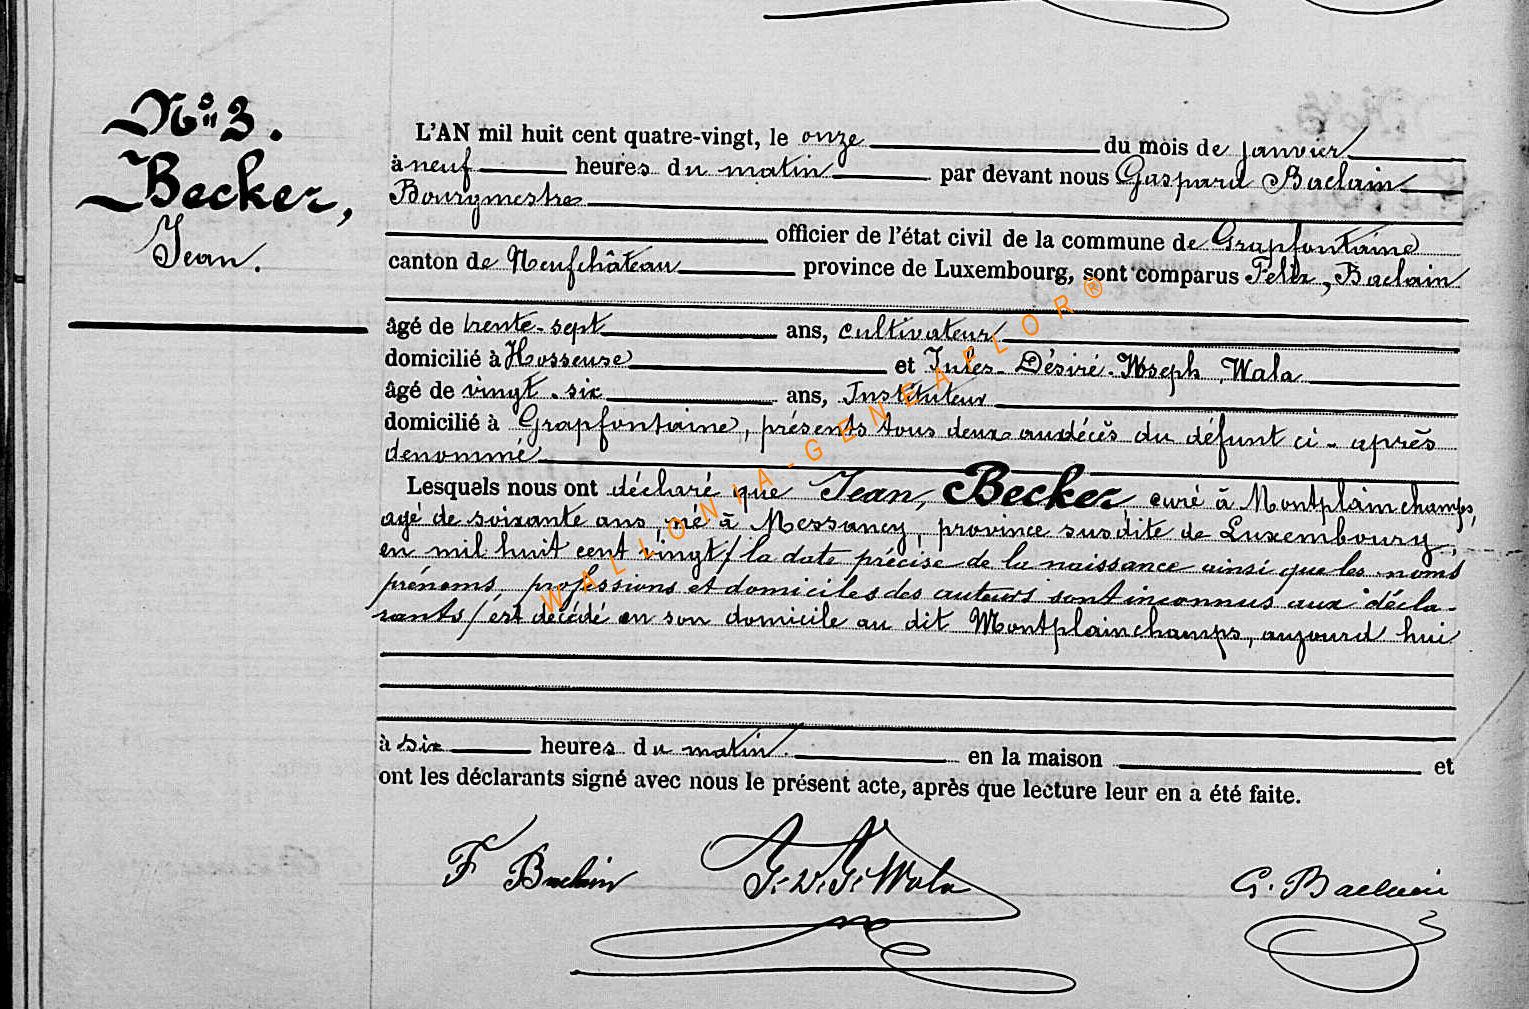 N° 3.
Becker,
Jean.
L'AN mil huit cent quatre-vingt, le onze du mois de janvier
à neuf heures du matin par devant nous Gaspard Baclain
Bourgmestre
officier de l'état civil de la commune de Grapfontaine
canton de Neufchâteau province de Luxembourg, sont comparus Félix, Baclain
âgé de trente-sept ans, cultivateur
domicilié à Hosseuse et Jules-Désiré-Joseph Wala
âgé de vingt-six ans, Instituteur
domicilié à Grapfontaine, présents tous deux au décès du défunt ci-après
denommé
Lesquels nous ont déclaré que Jean, Becker curé à Montplainchamps,
agé de soixante ans, né à Messancy, province susdite de Luxembourg,
en mil huit cent vingt / la date précise de la naissance ainsi que les noms
prénoms, professions et domiciles des auteurs sont inconnus aux décla-
rants / est décédé en son domicile au dit Montplainchamps, aujourd hui
à six heures du matin. en la maison et
ont les déclarants signé avec nous le présent acte, après que lecture leur en a été faite.
F Baclain J. D. J. Wala G. Baclain
WALLONIA-GENEAFLOR®